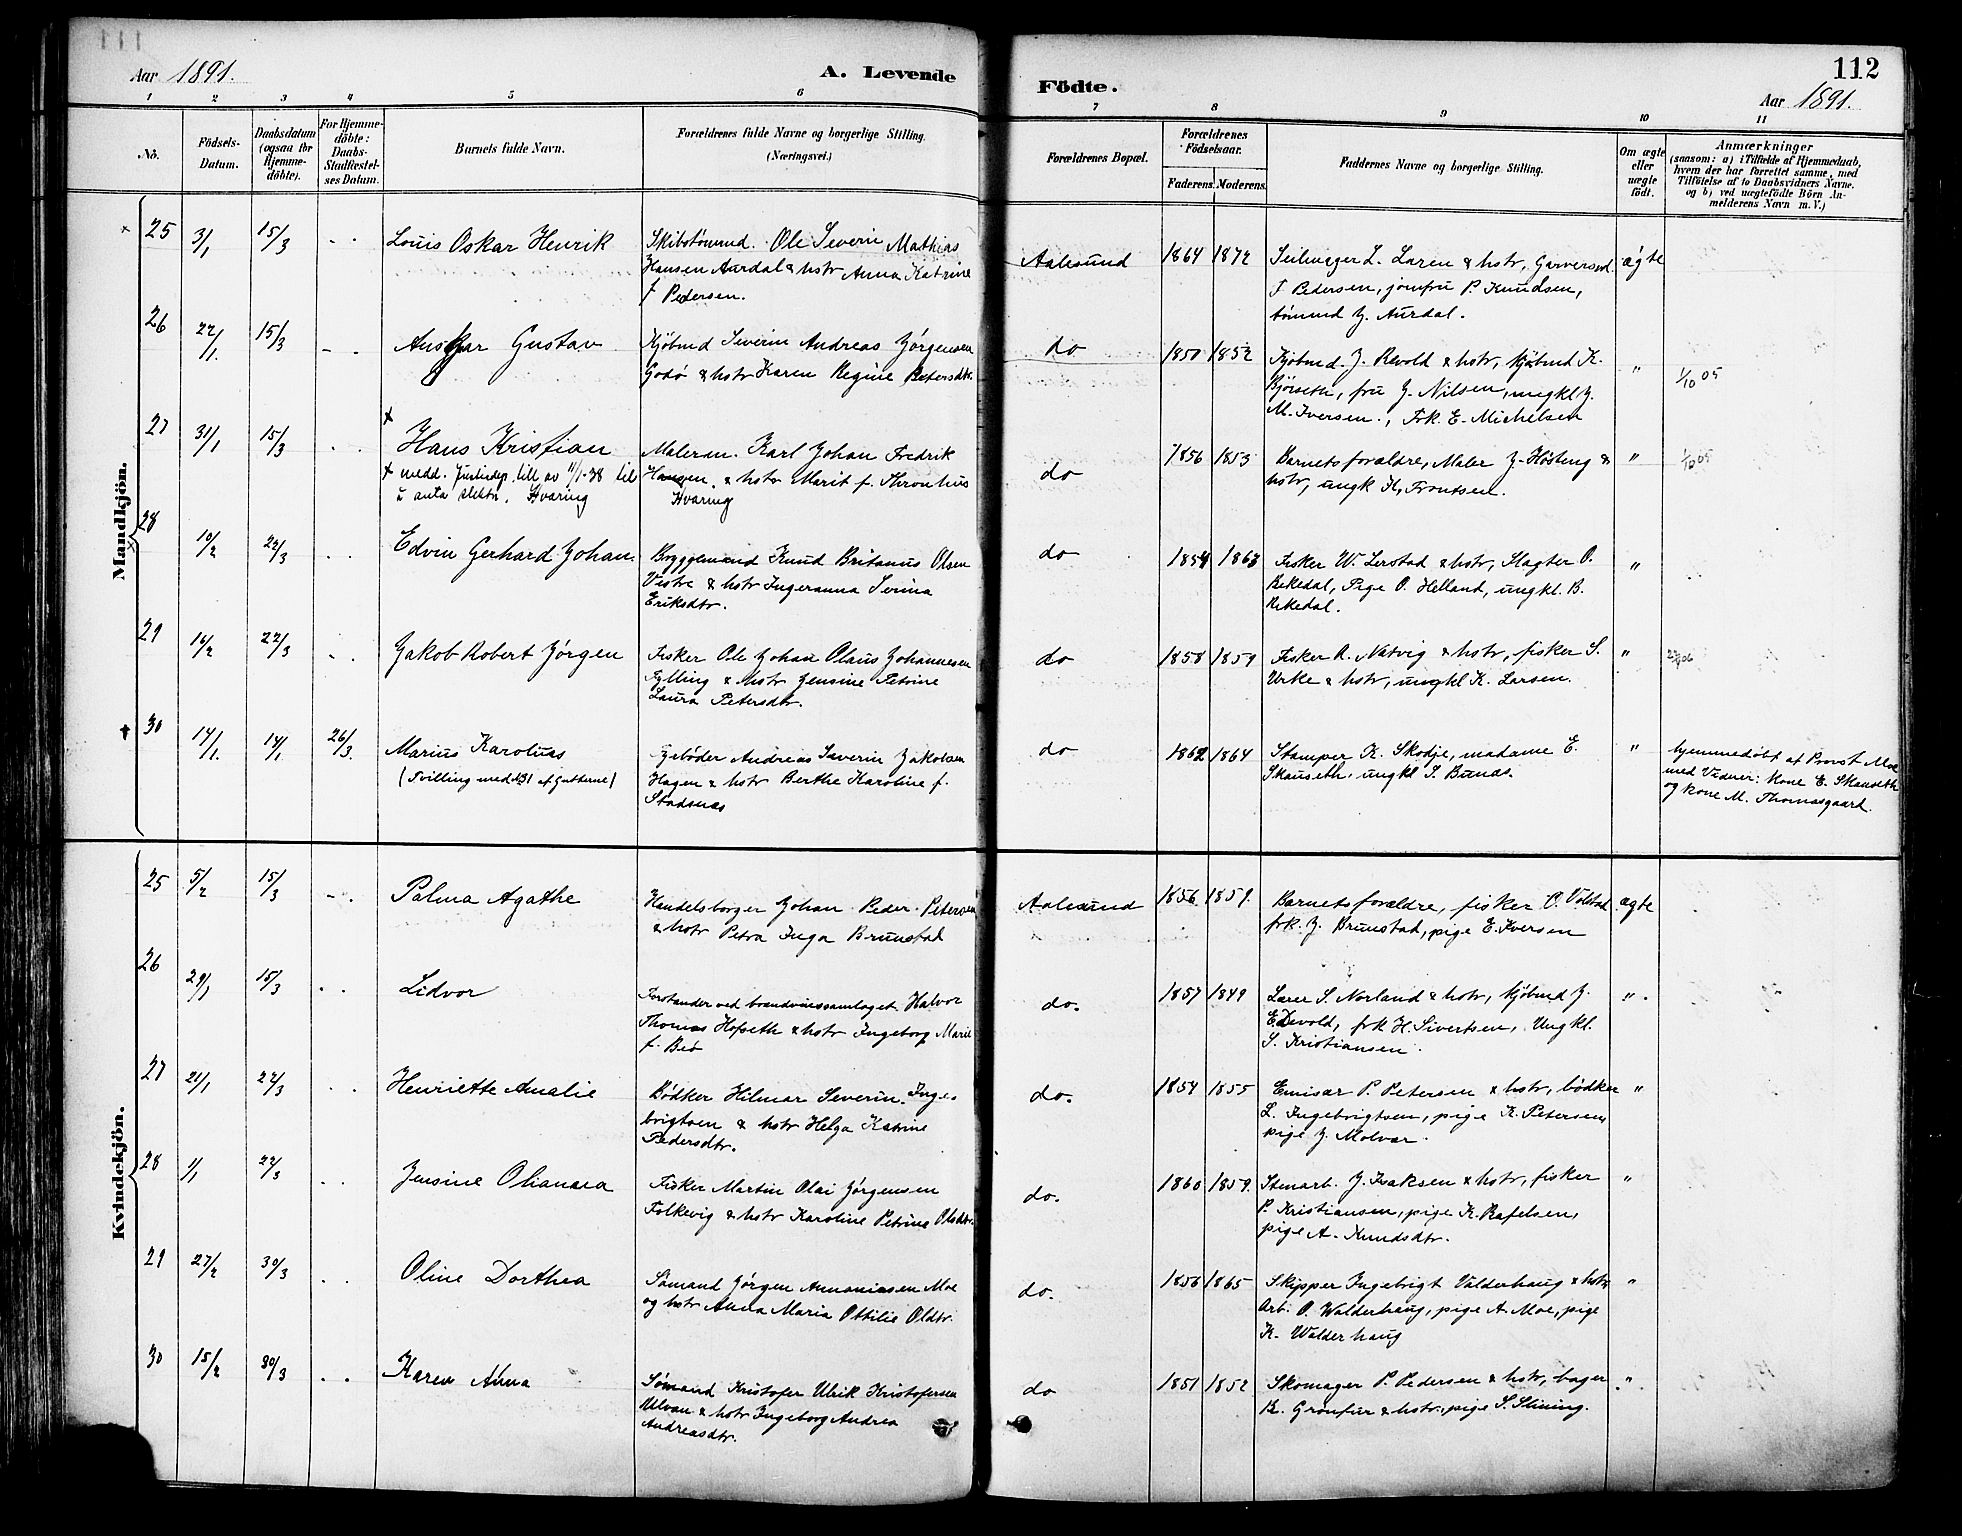 111
Aar 1891.
A. Levende
1 2 3 4 5 6
No.
Födsels-Datum.
Daabsdatum (ogsaa for Hjemme-döbte).
For Hjemme-döbte: Daabs-Stadfestel-ses Datum.
Barnets fulde Navn.
Forældrenes fulde Navne og borgerlige Stilling.
(Næringsvei.)
Mandkjön.
25 3/1 15/3 - - Louis Oskar Henrik
Skibstømmd. Ole Severin Mathias
Hansen Aurdal & hstr Anna Katrine
f. Pedersen.
26 22/1. 15/3 - - Ansgar Gustav
Kjöbmd Severin Andreas Jörgensen
Godö & hstr Karen Regine Petersdtr.
27 31/1 15/3 - - Hans Kristian
+ medd. Justisdep. till av 11/1-38 til
å anta slektn. Kvaring
Malersv. Karl Johan Fredrik
Hansen, & hstr Marit f. Thronhus
Kvaring
28 10/2 22/3 - - Edvin Gerhard Johan.
Bryggemand Knud Britanus Olsen
Vestre & hstr Ingeranna Serina
Eriksdtr.
29 16/2 22/3 - - Jakob Robert Jörgen
Fisker Ole Johan Olaus Johannesen
Fylling & hstr Jensine Petrine
Laura Petersdtr.
30 14/1. 14/1 26/3. Marius Karolius
(Tvilling med N31 af Gutterne)
Andreas Severin Jakobsen
Hagen & hstr Berthe Karoline f.
Stadsnes
Kvindekjön.
25 5/2 15/3 - - Palma Agathe
Handelsborger Johan Peder Petersen
& hstr Petra Inga Brunstad
26 29/1 15/3 - - Lidvor
Forstander ved brændvinssamlaget Halvor
Thomas Hofseth & hstr Ingeborg Marie
f. Beö
27 21/1 22/3 - - Henriette Amalie
Bödker Hilmar Severin Inge-
brigtsen & hstr Helga Katrine
Pedersdtr.
28 1/1 22/3 - - Jensine Olianna
Fisker Martin Olai Jörgensen
Folkevig & hstr Karoline Petrine Olsdtr.
29 27/2 30/3 - - Oline Dorthea
Sömand Jörgen Annaniassen Moe
og hstr Anna Maria Ottilie Oldtr.
30 15/2 30/3 - - Karen Anna
Sömand Kristofer Ulrik Kristofersen
Ulvan & hstr Ingeborg Andrea
Andreasdtr.
Födte.
112
Aar 1891.
7 8 9 10 11
Forældrenes Bopæl.
Forældrenes Födselsaar.
Faderens. Moderens.
Faddernes Navne og borgerlige Stilling.
Om ægte eller uægte födt.
Anmærkninger
(saasom: a) i Tilfælde af Hjemmedaab,
hvem der har forrettet samme, med
Tilföielse af to Daabsvidners Navne.
og b) ved uægtefödte Börn An-
melderens Navn m. V.)
Aalesund 1864 1872 L. Laren & hstr, Garversvd.
T. Pedersen, jomfru P. Knudsen,
tömmd J. Aurdal.
ægte
do 1850 1852 Kjöbmd. J. Revold & hstr, kjöbmd K.
Bjørseth, fru J. Nilsen, ungkl J.
M. Iversen., Frk. E. Michelsen
" 1/10 05
do 1856 1853 Barnets forældre, Maler J. Hösteng &
hstr, ungk H, Frontsen.
" 1/10 05
do 1854 1863 Fisker W. Lerstad & hstr, Slagter O.
Rekedal, Pige O. Helland, ungkl. B.
Rekedal.
"
do 1858 1859 Fisker R. Natvig & hstr, fisker S.
Urke & hstr, ungkl K. Larsen.
"
do 1862 1864 Stamper K. Skodje, madame E.
Skauseth, ungkl S. Bunds.
" hjemmedöbt af Provst Moe
med Vidner: kone E. Skauseth
og kone M. Thomasgaard.
Aalesund 1856 1859. Barnets forældre, fisker O. Volstad,
frk. J. Brunstad, pige E. Iversen
ægte
do. 1857 1849 Lærer S. Norland & hstr, kjöbmd J.
E. Devold, frk H. Sivertsen, Ungkl.
S. Kristiansen.
"
do. 1854 1855 Emisær P. Petersen & hstr, bödker
L. Ingebrigtsen, pige K. Petersen,
pige J. Molvær.
"
do. 1860 1859. Stenarb. J. Isaksen & hstr, fisker
P. Kristiansen, pige K. Rafelsen,
pige A. Knudsdtr.
"
do. 1856 1865 Skipper Ingebrigt Valderhaug & hstr
Arb. O. Walderhaug, pige A. Moe, pige
K. Walderhaug
"
do 1851 1852 Skomager P. Pedersen & hstr, bager
B. Grönfur & hstr., pige S. Slining.
"